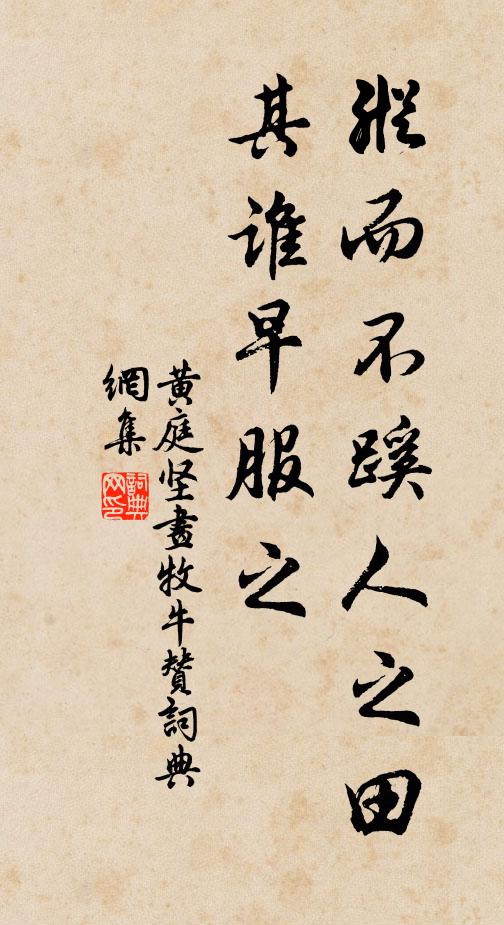 縱而不蹊人之田
其誰早服之
黄庭坚畫牧牛贊詞典
網集
詞典
网印